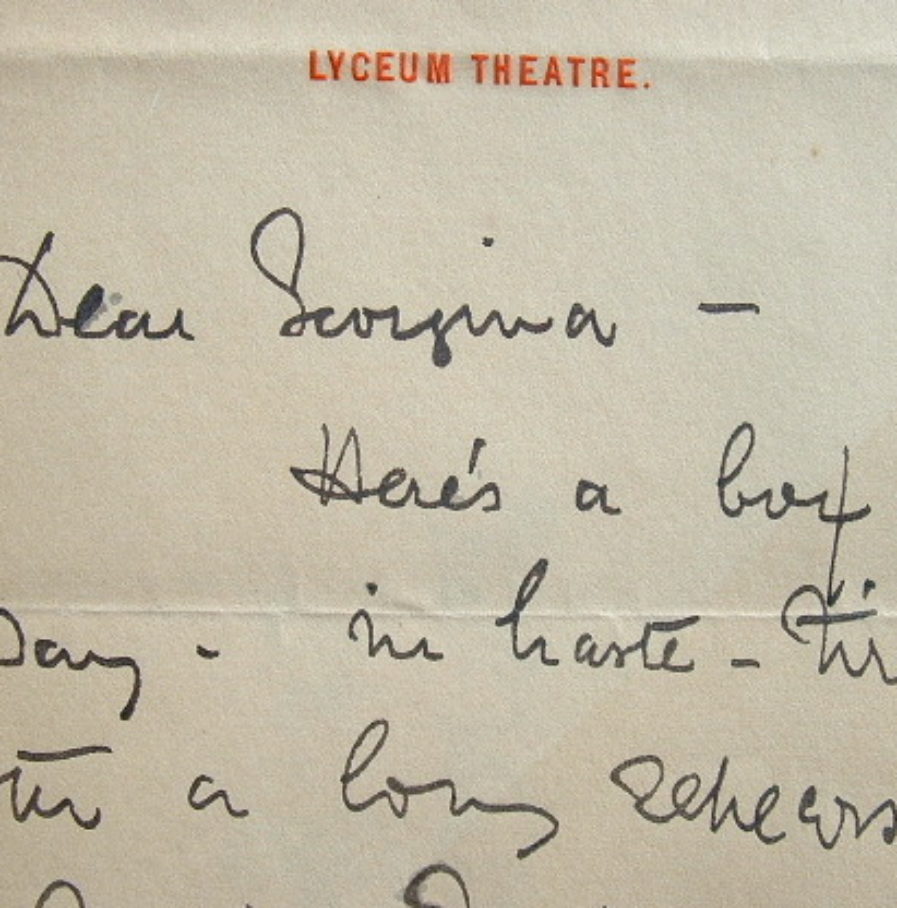 LYCEUM THEATRE.
Dear Georgina –
Here's a box
Day - in haste - Tir
ter a long rehears